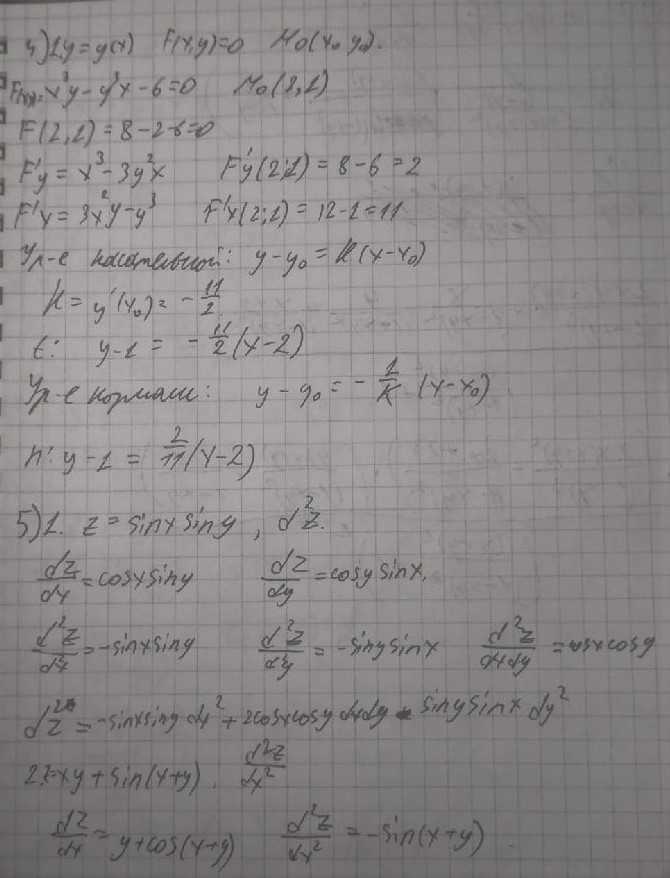 4) 1. y = y(x) F(x,y)=0 M0(x0 y0).
F(x,y)= x³y − y³x − 6 = 0 M0(2,1)
F(2,1) = 8 − 2 − 6 = 0
F'y = x³ − 3y²x F'y(2;1) = 8 − 6 = 2
F'x = 3x²y − y³ F'x(2;1) = 12 − 1 = 11
Ур-е касательной: y − y0 = K(x − x0)
K = y'(x0) = − 11/2
t: y − 1 = − 11/2 (x − 2)
Ур-е нормали: y − y0 = − 1/K (x − x0)
n: y − 1 = 2/11 (x − 2)
5) 1. z = sinx siny , d²z.
dz/dx = cosx siny dz/dy = cosy sinx.
d²z/dx = −sinx siny d²z/dy = −siny sinx d²z/dxdy = cosx cosy
d²z = −sinx siny dx² + 2cosx cosy dxdy − siny sinx dy²
2. z = xy + sin(x+y). d²z/dx²
dz/dx = y + cos(x+y) d²z/dx² = −sin(x+y)